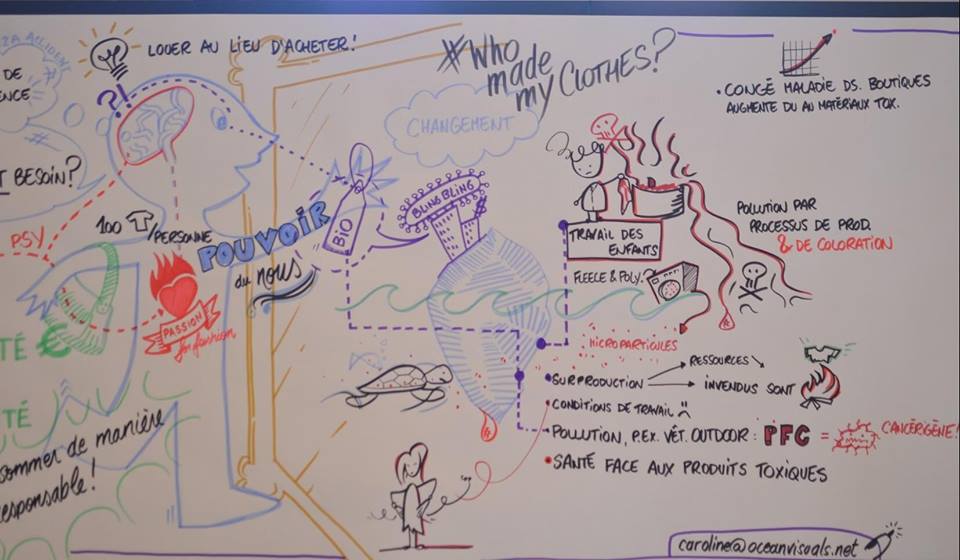 LOUER AU LIEU D'ACHETER!
?!
DE
ENCE
T BESOIN?
PSY
100 /PERSONNE
POUVOIR
du nous
PASSION
for fashion
TÉ €
TÉ
sommer de manière
esponsable!
#Who
made
my CLOTHES?
CHANGEMENT
BIO
BLING BLING
$
TRAVAIL DES
ENFANTS
FLEECE & POLY.
MICROPARTICULES
• CONGÉ MALADIE DS. BOUTIQUES
AUGMENTE DU AU MATÉRIAUX TOX.
POLLUTION PAR
PROCESSUS DE PROD.
& DE COLORATION
• SURPRODUCTION
RESSOURCES
INVENDUS SONT
• CONDITIONS DE TRAVAIL
• POLLUTION, P.EX. VÊT. OUTDOOR: PFC = CANCÉRIGÈNE!
• SANTÉ FACE AUX PRODUITS TOXIQUES
caroline@oceanvisuals.net